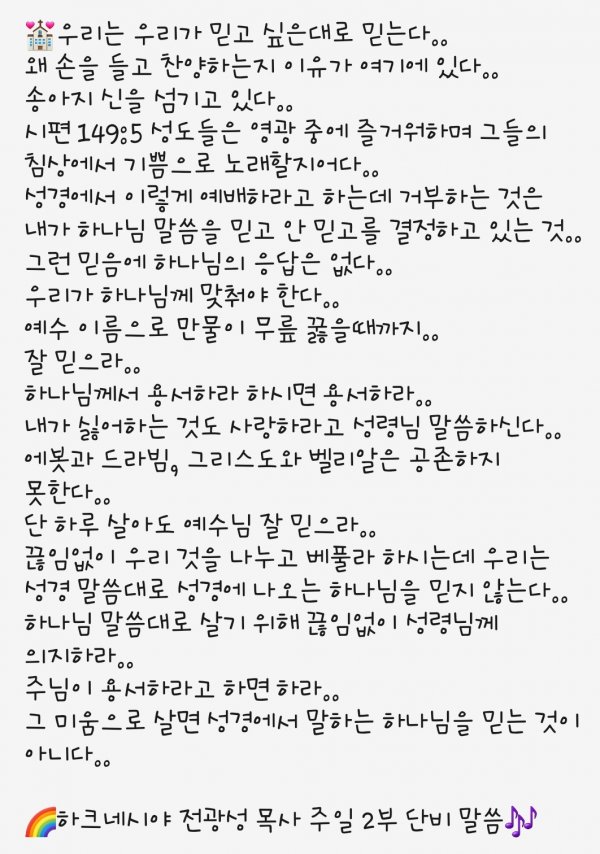 💒우리는 우리가 믿고 싶은대로 믿는다..
왜 손을 들고 찬양하는지 이유가 여기에 있다..
송아지 신을 섬기고 있다..
시편 149:5 성도들은 영광 중에 즐거워하며 그들의
침상에서 기쁨으로 노래할지어다..
성경에서 이렇게 예배하라고 하는데 거부하는 것은
내가 하나님 말씀을 믿고 안 믿고를 결정하고 있는 것..
그런 믿음에 하나님의 응답은 없다..
우리가 하나님께 맞춰야 한다..
예수 이름으로 만물이 무릎 꿇을때까지..
잘 믿으라..
하나님께서 용서하라 하시면 용서하라..
내가 싫어하는 것도 사랑하라고 성령님 말씀하신다..
에봇과 드라빔, 그리스도와 벨리알은 공존하지
못한다..
단 하루 살아도 예수님 잘 믿으라..
끊임없이 우리 것을 나누고 베풀라 하시는데 우리는
성경 말씀대로 성경에 나오는 하나님을 믿지 않는다..
하나님 말씀대로 살기 위해 끊임없이 성령님께
의지하라..
주님이 용서하라고 하면 하라..
그 미움으로 살면 성경에서 말하는 하나님을 믿는 것이
아니다..
🌈하크네시야 전광성 목사 주일 2부 단비 말씀🎶